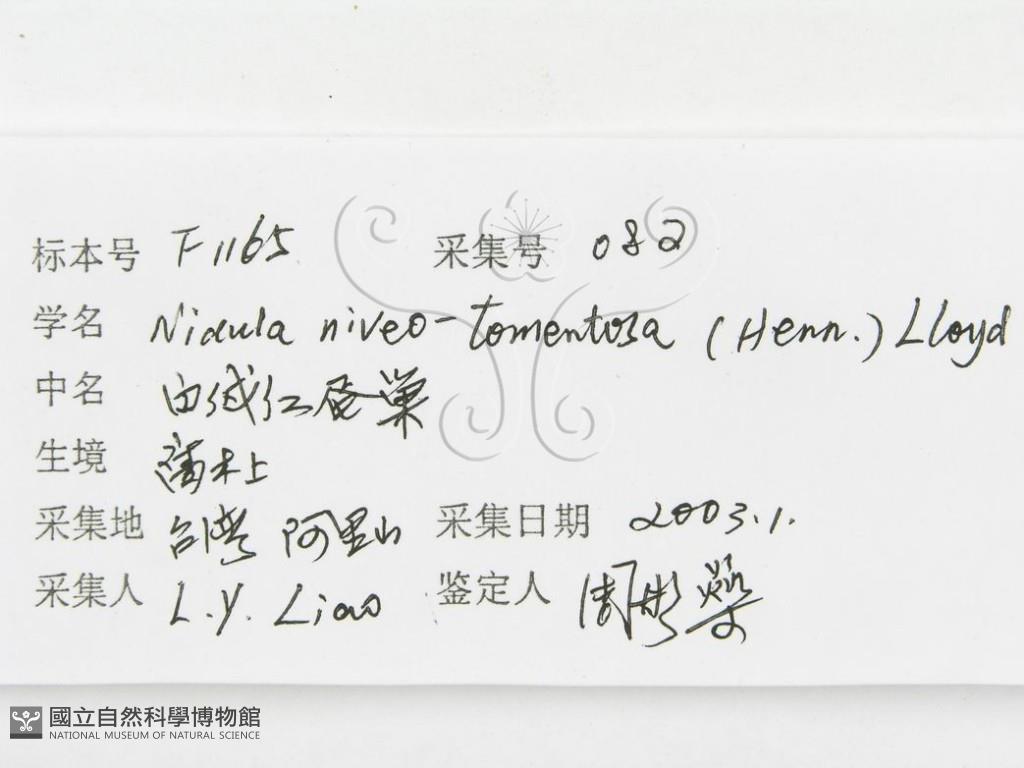 标本号 F1165 采集号 082
学名 Nidula niveo-tomentosa (Henn.) Lloyd
中名 白绒红蛋巢
生境 腐木上
采集地 台湾 阿里山 采集日期 2003.1.
采集人 L.Y. Liao 鉴定人 周彤燊
國立自然科學博物館
NATIONAL MUSEUM OF NATURAL SCIENCE